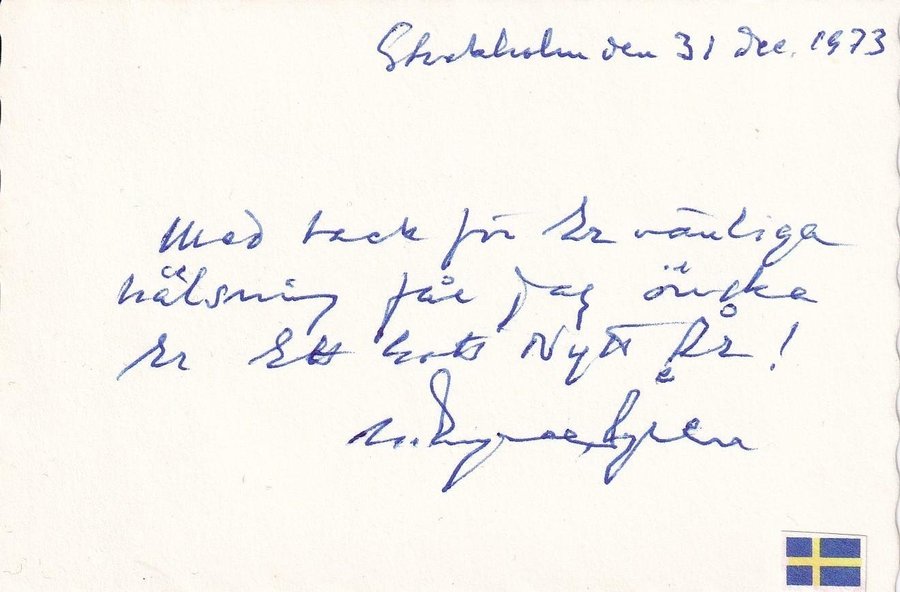 Stockholm den 31 dec. 1973
Med tack för Er vänliga
hälsning får jag önska
Er Ett Gott Nytt År!